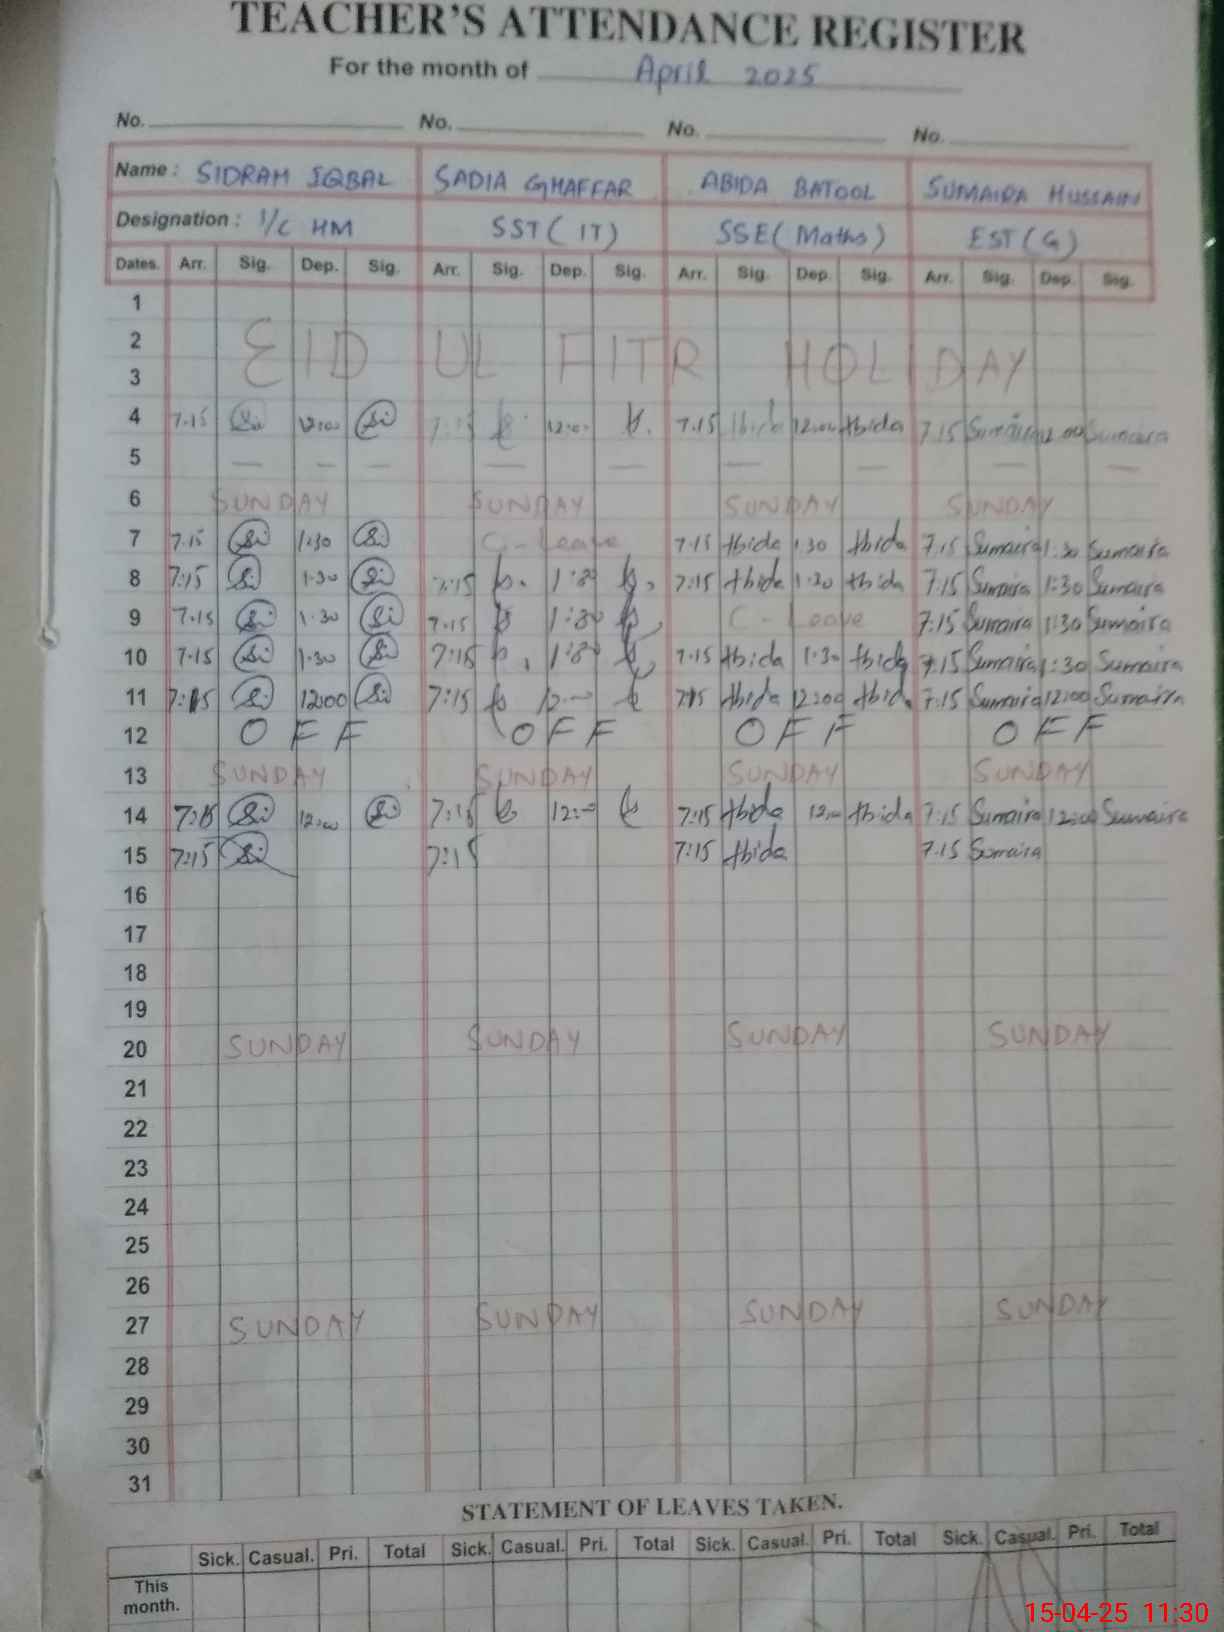 TEACHER'S ATTENDANCE REGISTER
For the month of April 2025
No. No. No. No.
Name : SIDRAH IQBAL SADIA GHAFFAR ABIDA BATOOL SUMAIRA HUSSAIN
Designation : I/C HM SST ( IT ) SSE ( Maths ) EST ( G )
Dates. Arr. Sig. Dep. Sig. Arr. Sig. Dep. Sig. Arr. Sig. Dep. Sig. Arr. Sig. Dep. Sig.
1
2 EID UL FITR HOLIDAY
3
4 7.15 Si 12:00 Si 7:15 12:00 7.15 Abida 12:00 Abida 7.15 Sumaira 12:00 Sumaira
5 — — — — — — — — —
6 SUNDAY SUNDAY SUNDAY SUNDAY
7 7.15 Si 1:30 Si C - Leave 7.15 Abida 1.30 Abida 7.15 Sumaira 1:30 Sumaira
8 7:15 Si 1.30 Si 7:15 1:30 7:15 Abida 1.30 Abida 7:15 Sumaira 1:30 Sumaira
9 7.15 Si 1.30 Si 7.15 1:30 C - Leave 7:15 Sumaira 1:30 Sumaira
10 7.15 Si 1.30 Si 7:15 1:30 7.15 Abida 1.30 Abida 7:15 Sumaira 1:30 Sumaira
11 7:15 Si 12:00 Si 7:15 12:00 7:15 Abida 12:00 Abida 7:15 Sumaira 12:00 Sumaira
12 OFF OFF OFF OFF
13 SUNDAY SUNDAY SUNDAY SUNDAY
14 7:15 Si 12:00 Si 7:15 12:00 7:15 Abida 12:00 Abida 7:15 Sumaira 12:00 Sumaira
15 7:15 Si 7:15 7:15 Abida 7.15 Sumaira
16
17
18
19
20 SUNDAY SUNDAY SUNDAY SUNDAY
21
22
23
24
25
26
27 SUNDAY SUNDAY SUNDAY SUNDAY
28
29
30
31
STATEMENT OF LEAVES TAKEN.
Sick. Casual. Pri. Total Sick. Casual. Pri. Total Sick. Casual. Pri. Total Sick. Casual. Pri. Total
This
month.
15-04-25 11:30